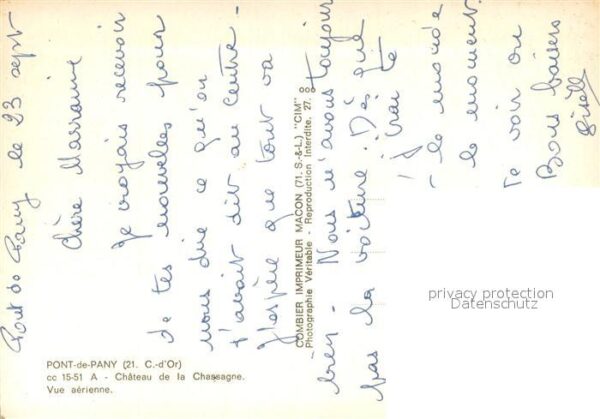 Pont de Pany le 23 sept
Chère Marraine
Je croyais recevoir
de tes nouvelles pour
nous dire ce qu'on
t'avait dit au centre.
J'espère que tout va
bien. Nous n'avons toujours
pas la voiture. Dès que
on ira te
voir
le monde
le moment.
te voir ou
Bons baisers
COMBIER IMPRIMEUR MACON (71. S.-&-L.) "CIM"
Photographie Véritable - Reproduction Interdite. 27. 8
PONT-de-PANY (21. C.-d'Or)
cc 15-51 A - Château de la Chassagne.
Vue aérienne.
privacy protection
Datenschutz